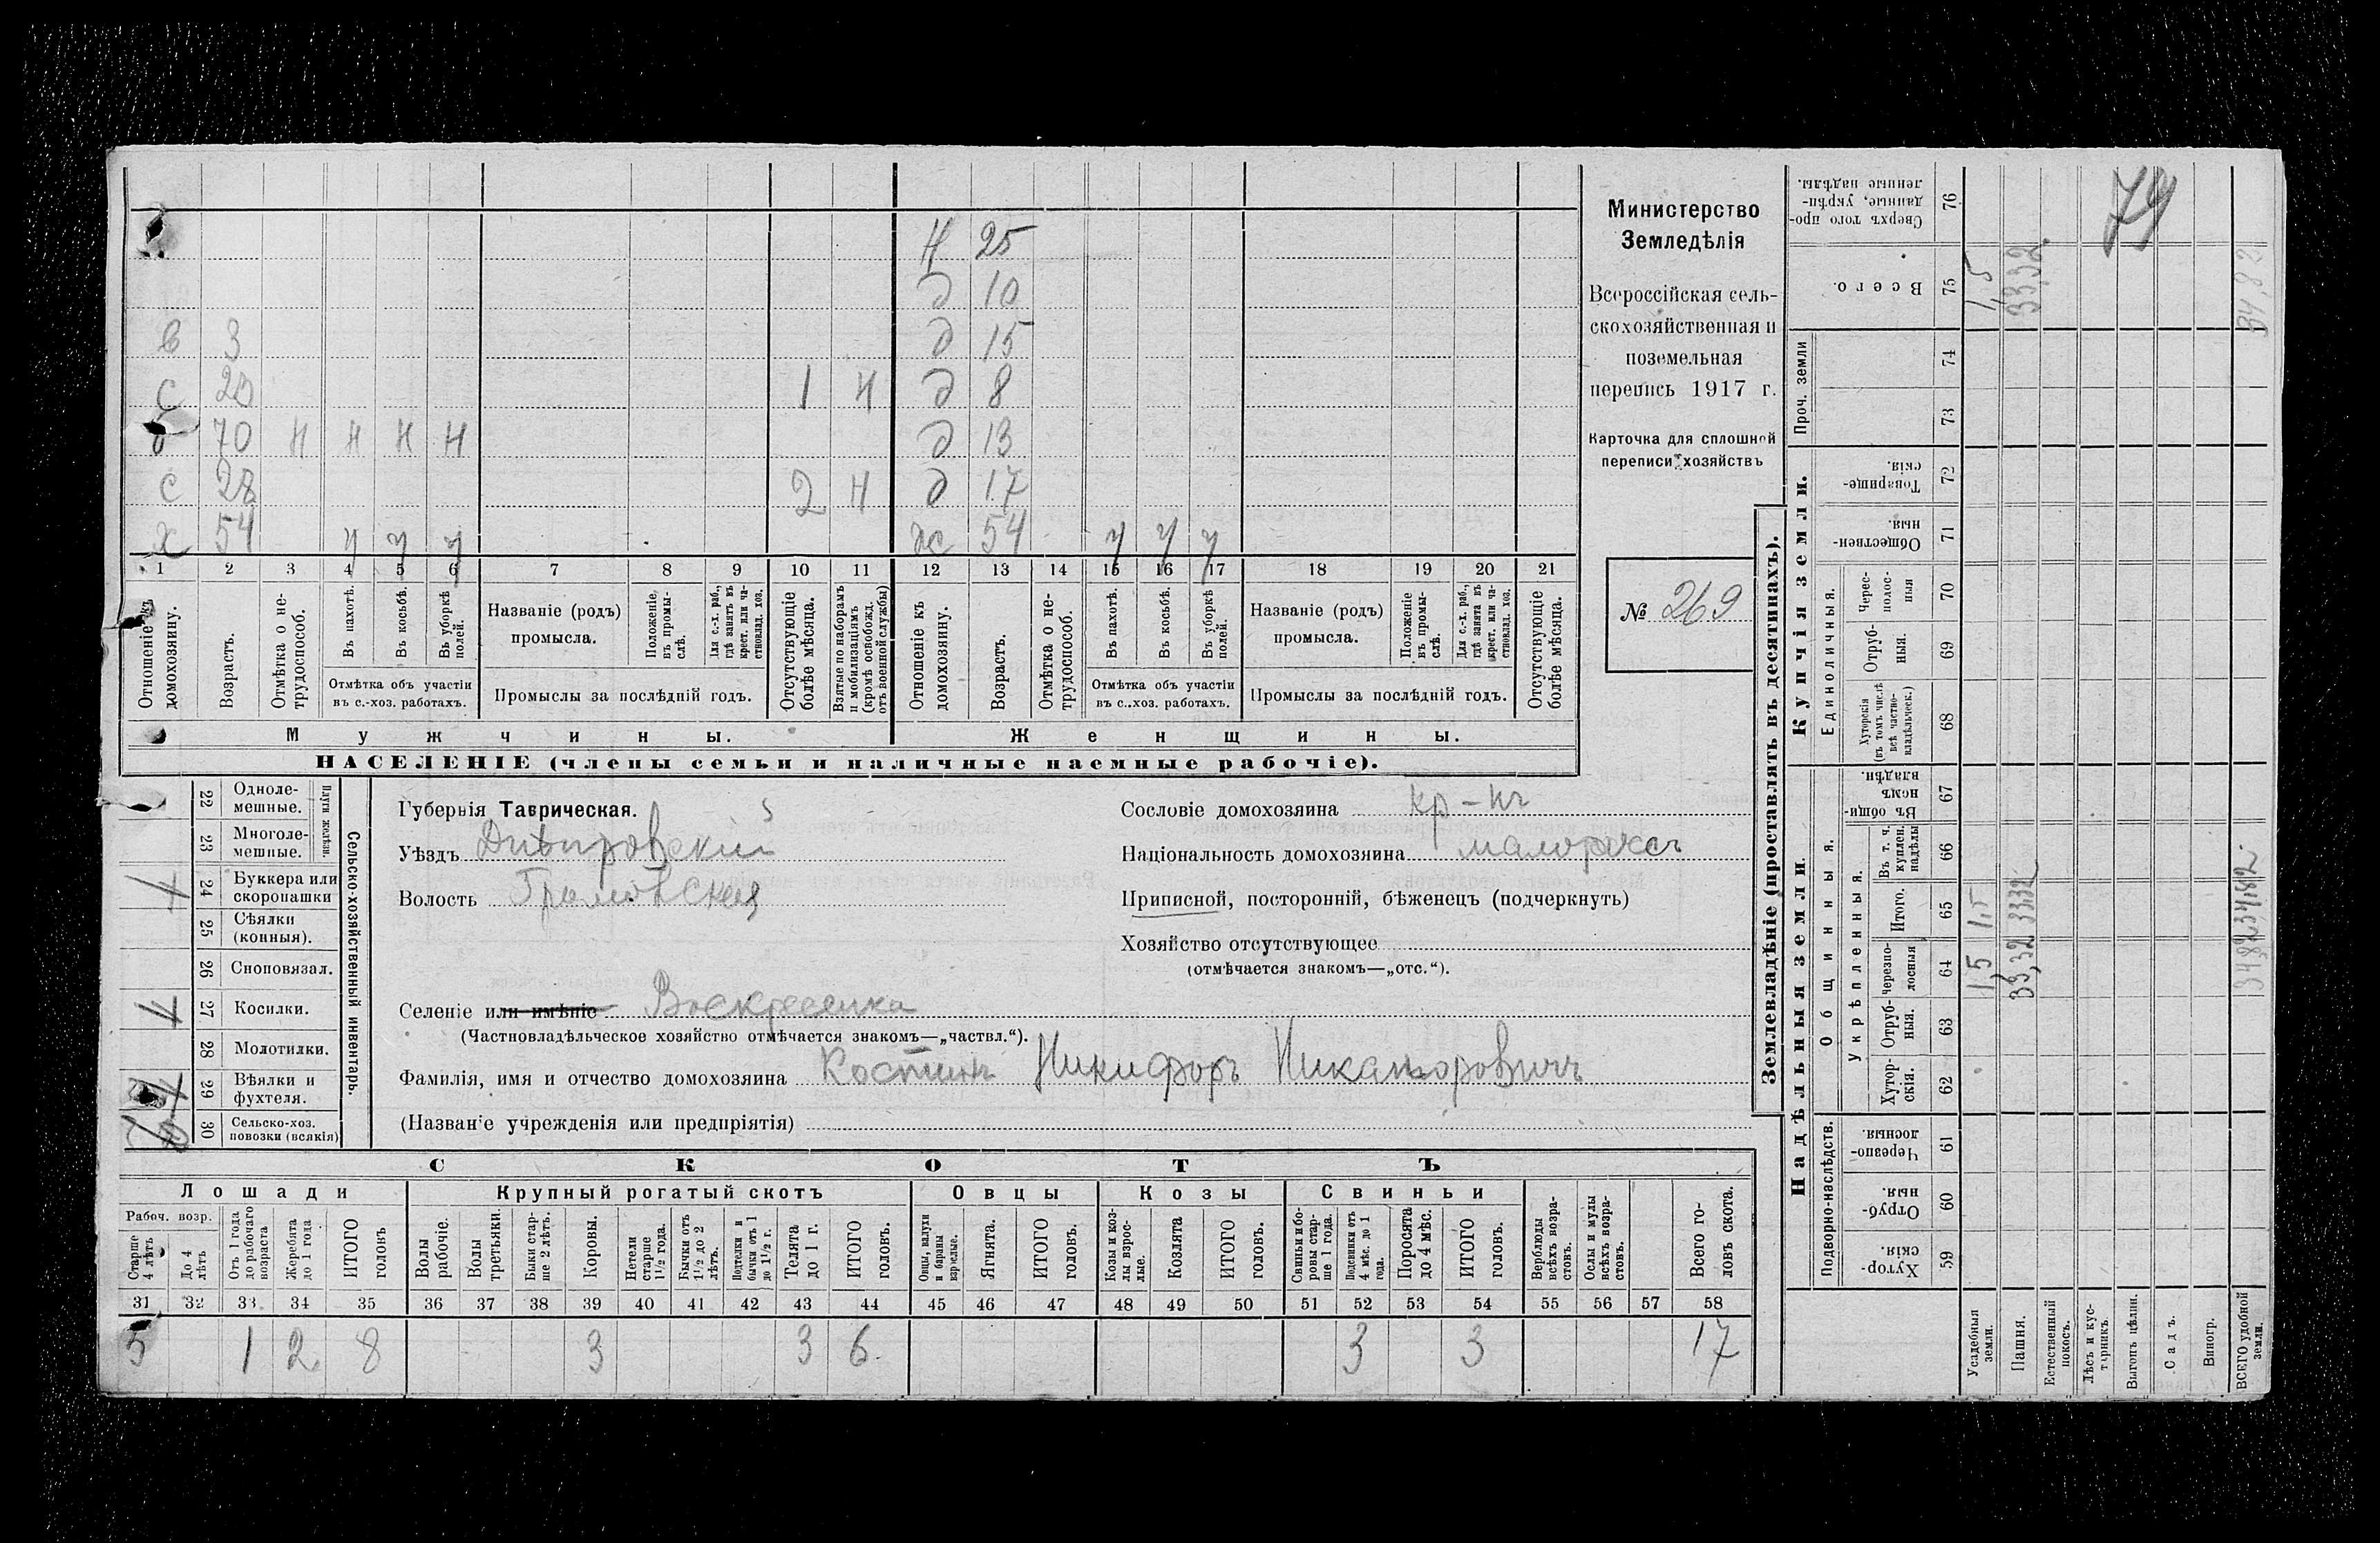 Н 25
д 10
в 3 д 15
с 20 1 Н д 8
70 Н Н Н Н д 13
с 28 2 Н д 17
х 54 ч ч ч ж 54 ч ч ч
1 2 3 4 5 6 7 8 9 10 11 12 13 14 15 16 17 18 19 20 21
Отношеніе къ домохозяину.
Возрастъ.
Отмѣтка о не-
трудоспособ.
Въ пахотѣ.
Въ косьбѣ.
Въ уборкѣ
полей.
Отмѣтка объ участіи
въ с.-хоз. работахъ.
Названіе (родъ)
промысла.
Положеніе
въ промы-
слѣ.
Для с.-х. раб.,
гдѣ занятъ въ
крест. или ча-
стновлад. хоз.
Промыслы за послѣдній годъ.
Отсутствующіе
болѣе мѣсяца.
Взятые по наборамъ
и мобилизаціямъ
(кромѣ освобожд.
отъ военной службы)
Отношеніе къ
домохозяину.
Возрастъ.
Отмѣтка о не-
трудоспособ.
Въ пахотѣ.
Въ косьбѣ.
Въ уборкѣ
полей.
Отмѣтка объ участіи
въ с..хоз. работахъ.
Названіе (родъ)
промысла.
Положеніе
въ промы-
слѣ.
Для с.-х. раб.,
гдѣ занята въ
крест. или ча-
стновлад. хоз.
Промыслы за послѣдній годъ.
Отсутствующіе
болѣе мѣсяца.
Мужчины.
Женщины.
НАСЕЛЕНІЕ (члены семьи и наличные наемные рабочіе).
Министерство
Земледѣлія
Всероссійская сель-
скохозяйственная и
поземельная
перепись 1917 г.
Карточка для сплошной
переписи хозяйствъ
№ 269
22 Одноле-
мешные.
23 Многоле-
мешные.
Плуги желѣзн.
24 Буккера или
скоропашки
1
25 Сѣялки
(конныя).
26 Сноповязал.
27 Косилки.
1
28 Молотилки.
29 Вѣялки и
фухтеля.
1
30 Сельско-хоз.
повозки (всякія)
Сельско-хозяйственный инвентарь.
Губернія Таврическая.
Уѣздъ Днѣпровскій
Волость Громовская
Селеніе или имѣніе Воскресенка
(Частновладѣльческое хозяйство отмѣчается знакомъ—„частвл.“).
Фамилія, имя и отчество домохозяина Костинъ Никифоръ Никаноровичъ
(Названіе учрежденія или предпріятія)
Сословіе домохозяина кр-нъ
Національность домохозяина малороссъ
Приписной, посторонній, бѣженецъ (подчеркнуть)
Хозяйство отсутствующее
(отмѣчается знакомъ—„отс.“).
СКОТЪ
Лошади
Крупный рогатый скотъ
Овцы
Козы
Свиньи
Рабоч. возр.
Старше
4 лѣтъ
До 4
лѣтъ
Отъ 1 года
до рабочаго
возраста
Жеребята
до 1 года
ИТОГО
головъ
Волы
рабочіе.
Волы
третьяки.
Быки стар-
ше 2 лѣтъ.
Коровы.
Нетели
старше
1½ года.
Бычки отъ
1½ до 2
лѣтъ.
Подтелки и
бычки отъ 1
до 1½ г.
Телята
до 1 г.
ИТОГО
головъ.
Овцы, валухи
и бараны
взрослые.
Ягнята.
ИТОГО
головъ.
Козы и коз-
лы взрос-
лые.
Козлята
ИТОГО
головъ.
Свиньи и бо-
ровы стар-
ше 1 года.
Подсвинки отъ
4 мѣс. до 1
года.
Поросята
до 4 мѣс.
ИТОГО
головъ.
Верблюды
всѣхъ возра-
стовъ.
Ослы и мулы
всѣхъ возра-
стовъ.
Всего го-
ловъ скота.
31 32 33 34 35 36 37 38 39 40 41 42 43 44 45 46 47 48 49 50 51 52 53 54 55 56 57 58
5 1 2 8 3 3 6 3 3 17
Землевладѣніе (проставлять въ десятинахъ).
Купчія земли.
Надѣльныя земли
Сверхъ того про-
данные, укрѣп-
ленные надѣлы. 76
Всего. 75
Проч. земли
74
73
Товарище-
скія. 72
Обществен-
ныя. 71
Единоличныя.
Черес-
полос-
ныя 70
Отруб-
ныя. 69
Хуторскія
(въ томъ числѣ
всѣ частно-
владѣльческ.) 68
Общинныя.
Въ общин-
номъ
владѣн. 67
Укрѣпленныя.
Въ т. ч.
куплен.
надѣлы 66
Итого. 65
Черезпо-
лосныя 64
Отруб-
ныя. 63
Хутор-
скія. 62
Подворно-наслѣдств.
Черезпо-
лосныя. 61
Отруб-
ныя. 60
Хутор-
скія. 59
Усадебныя
земли.
1,5 1,5 1,5
Пашня.
33,32 33,32 33,32
Естественный
покосъ.
Лѣсъ и кус-
тарникъ.
Выгонъ цѣлин.
Садъ.
Виногр.
ВСЕГО удобной
земли.
34,82 34,82 34,82
79